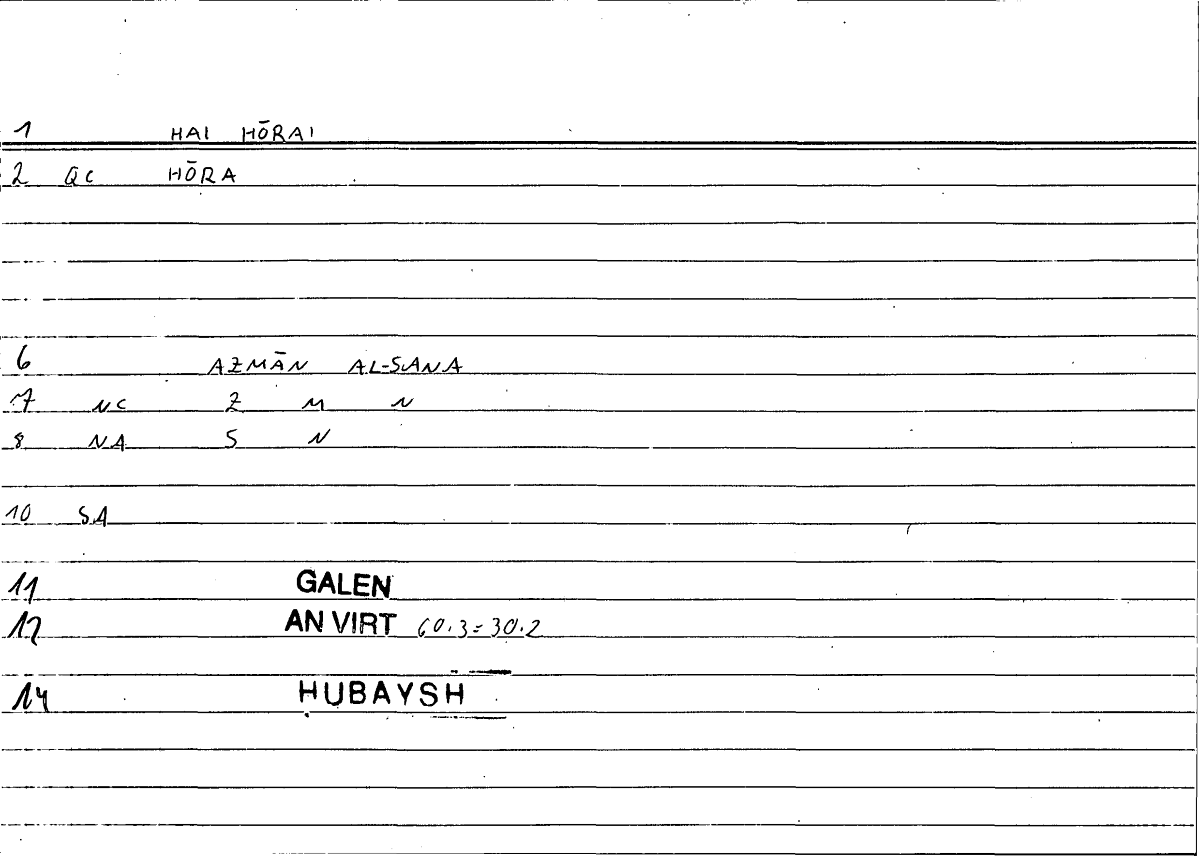 1 HAI HŌRAI
2 QC HŌRA
6 AZMĀN AL-SANA
7 NC Z M N
8 NA S N
10 SA
11 GALEN
12 AN VIRT 60.3=30.2
14 HUBAYSH